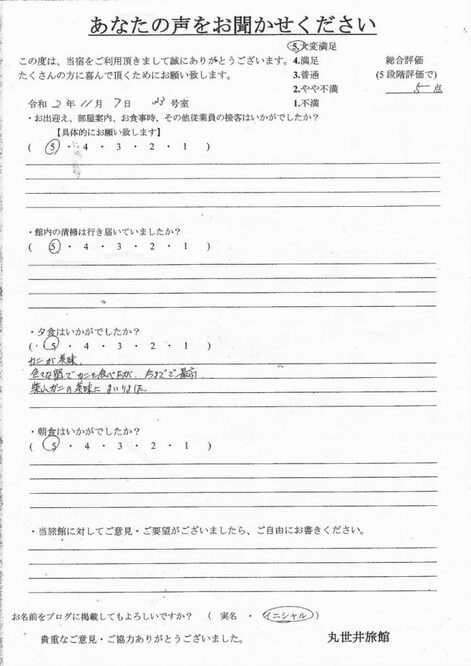 あなたの声をお聞かせください
この度は、当宿をご利用頂きまして誠にありがとうございます。
たくさんの方に喜んで頂くためにお願い致します。
5.大変満足
4.満足
3.普通
2.やや不満
1.不満
総合評価
(5段階評価で)
5 点
令和 2 年 11 月 7 日 号室
・お出迎え、部屋案内、お食事時、その他従業員の接客はいかがでしたか?
【具体的にお願い致します】
( 5 ・ 4 ・ 3 ・ 2 ・ 1 )
・館内の清掃は行き届いていましたか?
( 5 ・ 4 ・ 3 ・ 2 ・ 1 )
・夕食はいかがでしたか?
( 5 ・ 4 ・ 3 ・ 2 ・ 1 )
カニが美味、
色々な宿でカニを食べたが、今までで最高
柴山ガニの美味にまいりました。
・朝食はいかがでしたか?
( 5 ・ 4 ・ 3 ・ 2 ・ 1 )
・当旅館に対してご意見・ご要望がございましたら、ご自由にお書きください。
お名前をブログに掲載してもよろしいですか? ( 実名 ・ イニシャル )
貴重なご意見・ご協力ありがとうございました。
丸世井旅館